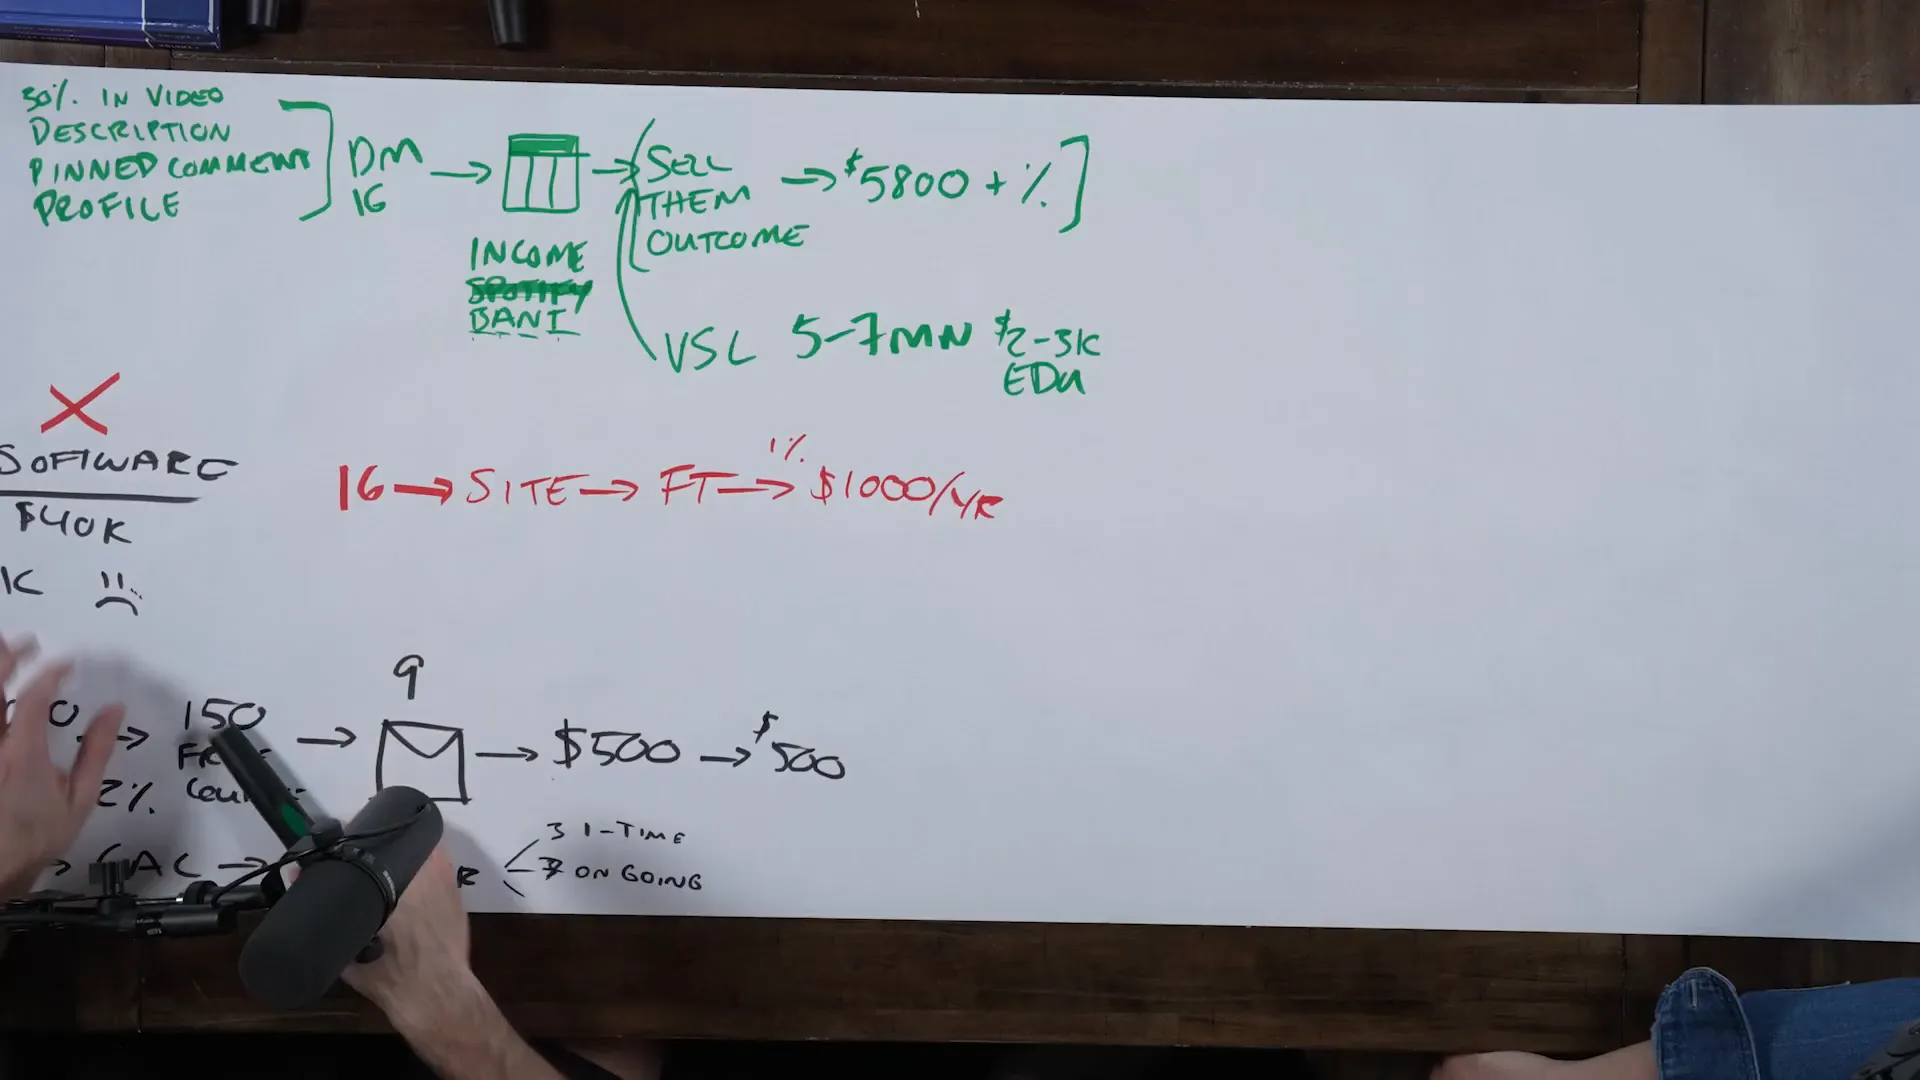 30% IN VIDEO
DESCRIPTION
PINNED COMMENT
PROFILE
DM
IG
INCOME
SPOTIFY
BANT
SELL
THEM
OUTCOME
$5800 + %
VSL 5-7MN $2-3K
EDU
SOFTWARE
$40K
K
IG → SITE → FT → $1000/YR
1%
150
2%
9
$500 → $500
3 1-TIME
ON GOING